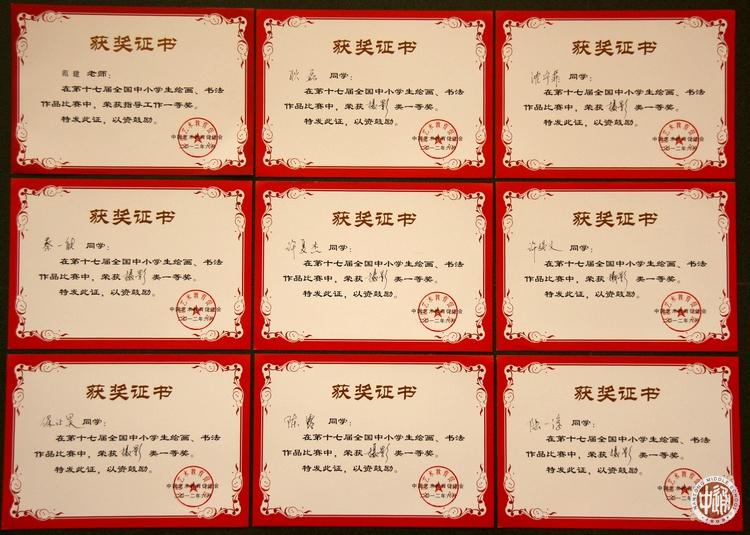 获奖证书
范建 老师：
在第十七届全国中小学生绘画、书法
作品比赛中，荣获指导工作一等奖。
特发此证，以资鼓励。
中国艺术教育促进会
二〇一二年六月
获奖证书
耿磊 同学：
在第十七届全国中小学生绘画、书法
作品比赛中，荣获 摄影 类一等奖。
特发此证，以资鼓励。
中国艺术教育促进会
二〇一二年六月
获奖证书
同学：
在第十七届全国中小学生绘画、书法
作品比赛中，荣获 摄影 类一等奖。
特发此证，以资鼓励。
中国艺术教育促进会
二〇一二年六月
获奖证书
蔡一敏 同学：
在第十七届全国中小学生绘画、书法
作品比赛中，荣获 摄影 类一等奖。
特发此证，以资鼓励。
中国艺术教育促进会
二〇一二年六月
获奖证书
许夏杰 同学：
在第十七届全国中小学生绘画、书法
作品比赛中，荣获 摄影 类一等奖。
特发此证，以资鼓励。
中国艺术教育促进会
二〇一二年六月
获奖证书
同学：
在第十七届全国中小学生绘画、书法
作品比赛中，荣获 摄影 类一等奖。
特发此证，以资鼓励。
中国艺术教育促进会
二〇一二年六月
获奖证书
同学：
在第十七届全国中小学生绘画、书法
作品比赛中，荣获 摄影 类一等奖。
特发此证，以资鼓励。
中国艺术教育促进会
二〇一二年六月
获奖证书
陈 同学：
在第十七届全国中小学生绘画、书法
作品比赛中，荣获 摄影 类一等奖。
特发此证，以资鼓励。
中国艺术教育促进会
二〇一二年六月
获奖证书
陈一 同学：
在第十七届全国中小学生绘画、书法
作品比赛中，荣获 摄影 类一等奖。
特发此证，以资鼓励。
中国艺术教育促进会
二〇一二年六月